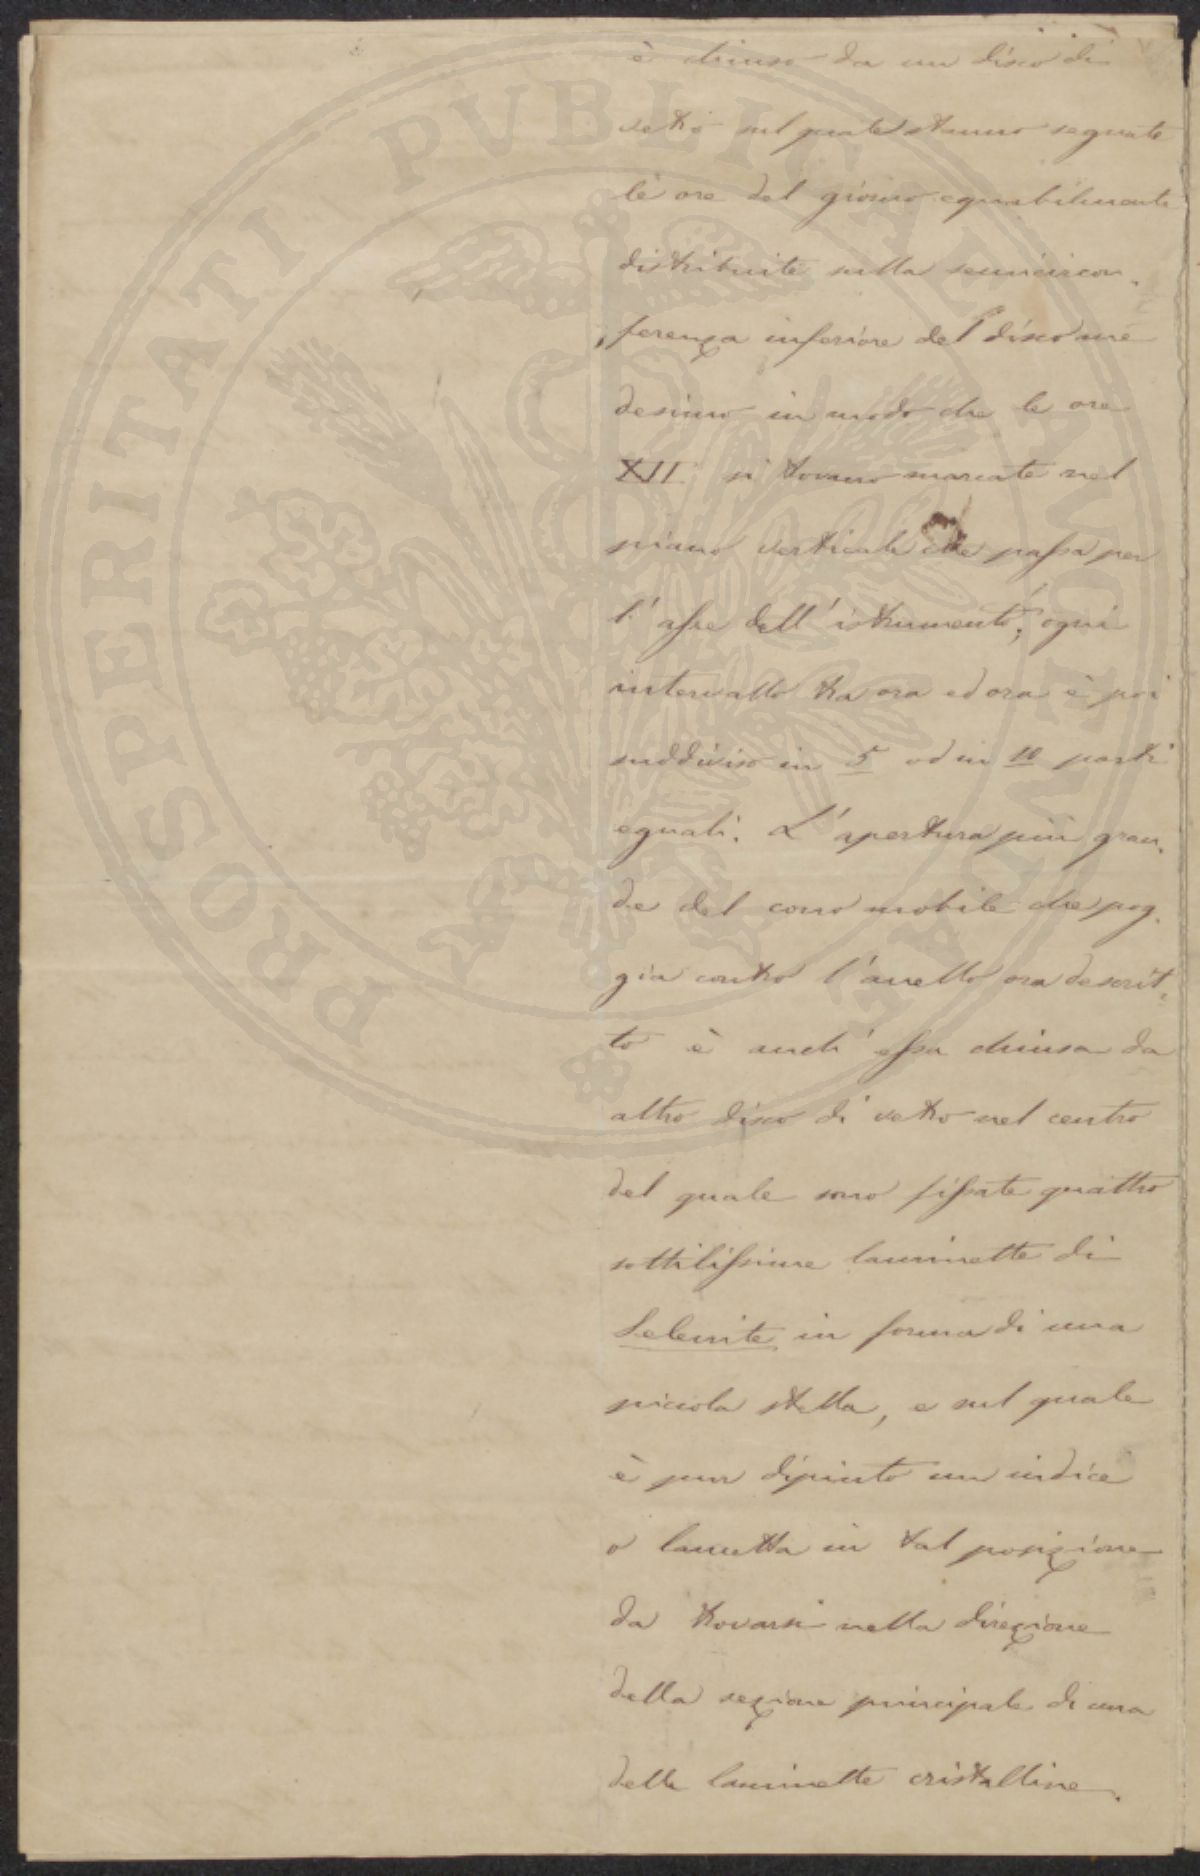 è chiuso da un disco di
vetro sul quale stanno segnate
le ore del giorno equabilmente
distribuite sulla semicircon-
ferenza inferiore del disco me
desimo in modo che le ore
XII si trovano marcate nel
piano verticale che passa per
l'asse dell'istrumento; ogni
intervallo tra ora ed ora è poi
suddiviso in 5 od in 10 parti
eguali. L'apertura più gran-
de del cono mobile che pog-
gia contro l'anello ora descrit-
to è anch'essa chiusa da
altro disco di vetro nel centro
del quale sono fissate quattro
sottilissime laminette di
Selenite in forma di una
piccola stella, e sul quale
è pur dipinto un indice
o lancetta in tal posizione
da trovarsi nella direzione
della sezione principale di una
delle laminette cristalline.
PROSPERITATI PUBLICAE AUGENDAE